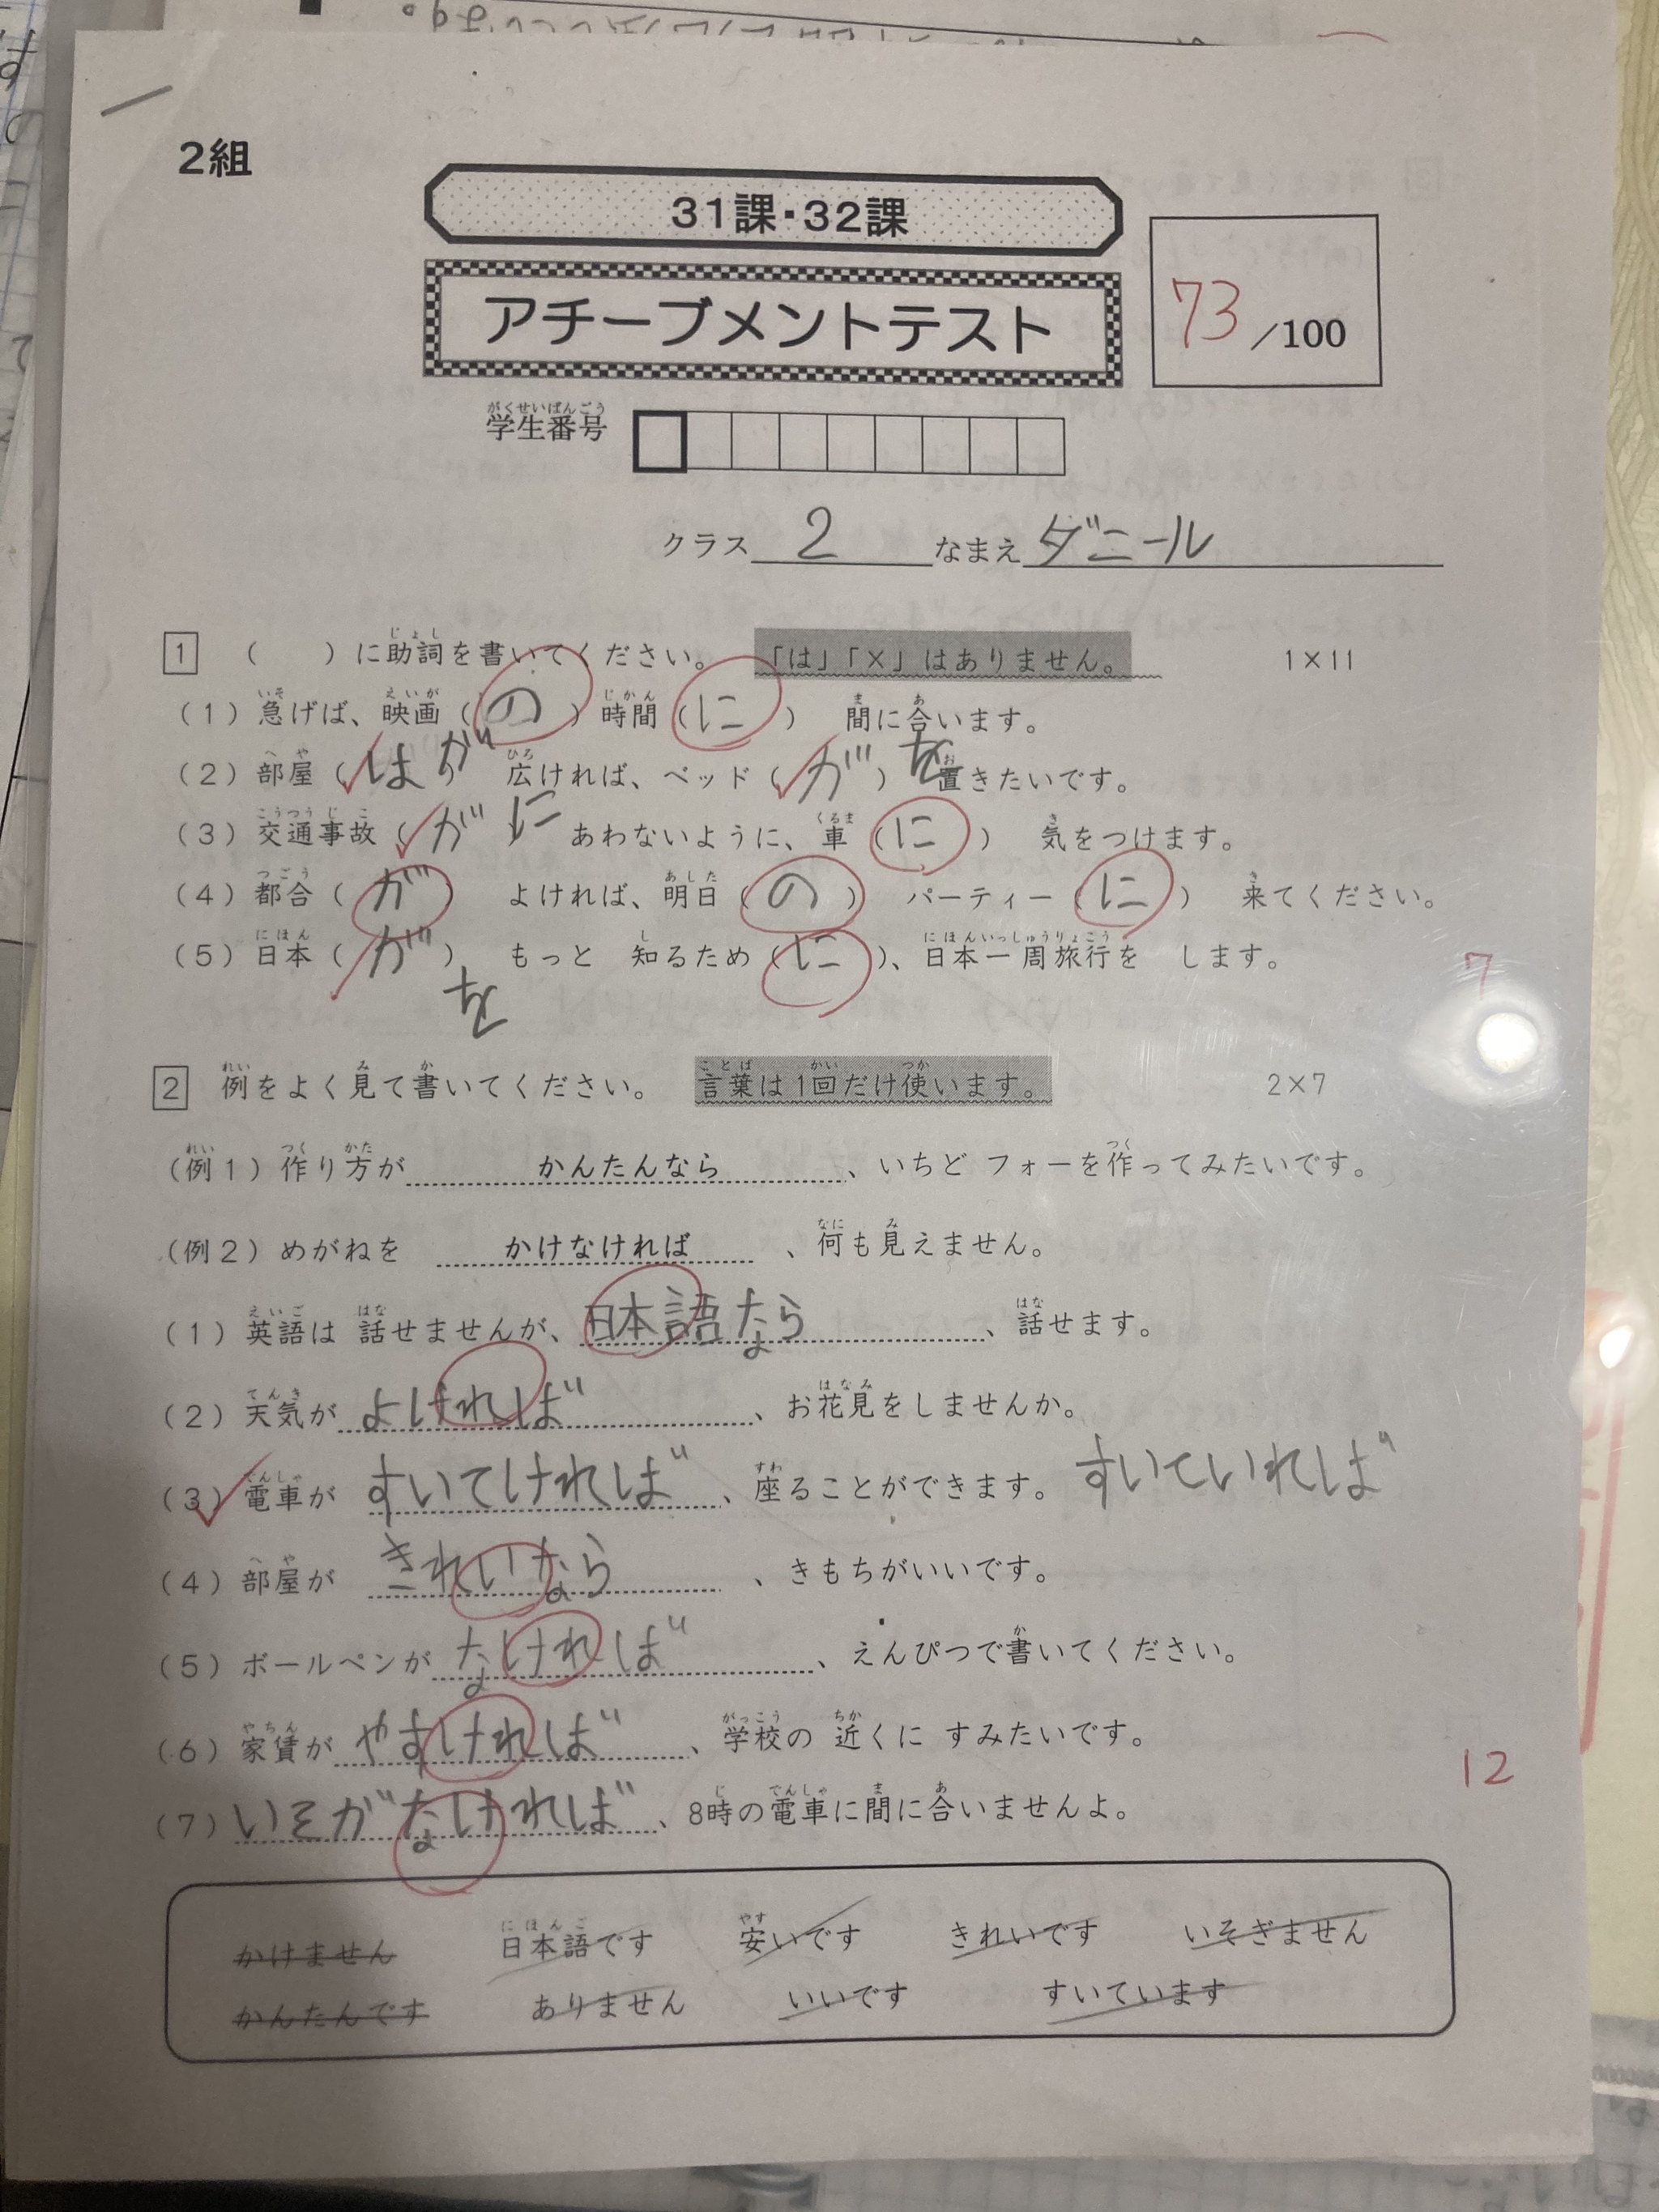 2組
31課・32課
アチーブメントテスト
73/100
学生番号
クラス 2 なまえ ダニール
1 ( )に助詞を書いてください。 「は」「×」はありません。 1×11
(1)急げば、映画(の)時間(に) 間に合います。
(2)部屋(は)が 広ければ、ベッド(が)を 置きたいです。
(3)交通事故(が)に あわないように、車(に) 気をつけます。
(4)都合(が) よければ、明日(の) パーティー(に) 来てください。
(5)日本(が) もっと 知るため(に)、日本一周旅行を します。 7
を
2 例をよく見て書いてください。 言葉は1回だけ使います。 2×7
(例1)作り方が かんたんなら 、いちど フォーを作ってみたいです。
(例2)めがねを かけなければ 、何も見えません。
(1)英語は 話せませんが、日本語なら 、話せます。
(2)天気が よければ 、お花見をしませんか。
(3)電車が すいてければ 、座ることができます。 すいていれば
(4)部屋が きれいなら 、きもちがいいです。
(5)ボールペンが なければ 、えんぴつで書いてください。
(6)家賃が やすければ 、学校の 近くに すみたいです。
12
(7)いそがなければ 、8時の電車に間に合いませんよ。
かけません 日本語です 安いです きれいです いそぎません
かんたんです ありません いいです すいています